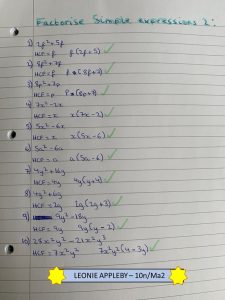 Factorise Simple expressions 2:
1) 2f² + 5f
HCF = f f(2f+5) ✓
2) 8f² + 7f
HCF = f f(8f+7) ✓
3) 8p² + 7p
HCF = p p(8p+7) ✓
4) 7x² - 2x
HCF = x x(7x-2) ✓
5) 5x² - 6x
HCF = x x(5x-6) ✓
6) 5a² - 6a
HCF = a a(5a-6) ✓
7) 4y² + 16y
HCF = 4y 4y(y+4) ✓
8) 4y² + 6y
HCF = 2y 2y(2y+3) ✓
9) 9y² - 18y
HCF = 9y 9y(y-2) ✓
10) 28x²y² - 21x²y³
HCF = 7x²y² 7x²y²(4-3y) ✓
LEONIE APPLEBY – 10n/Ma2